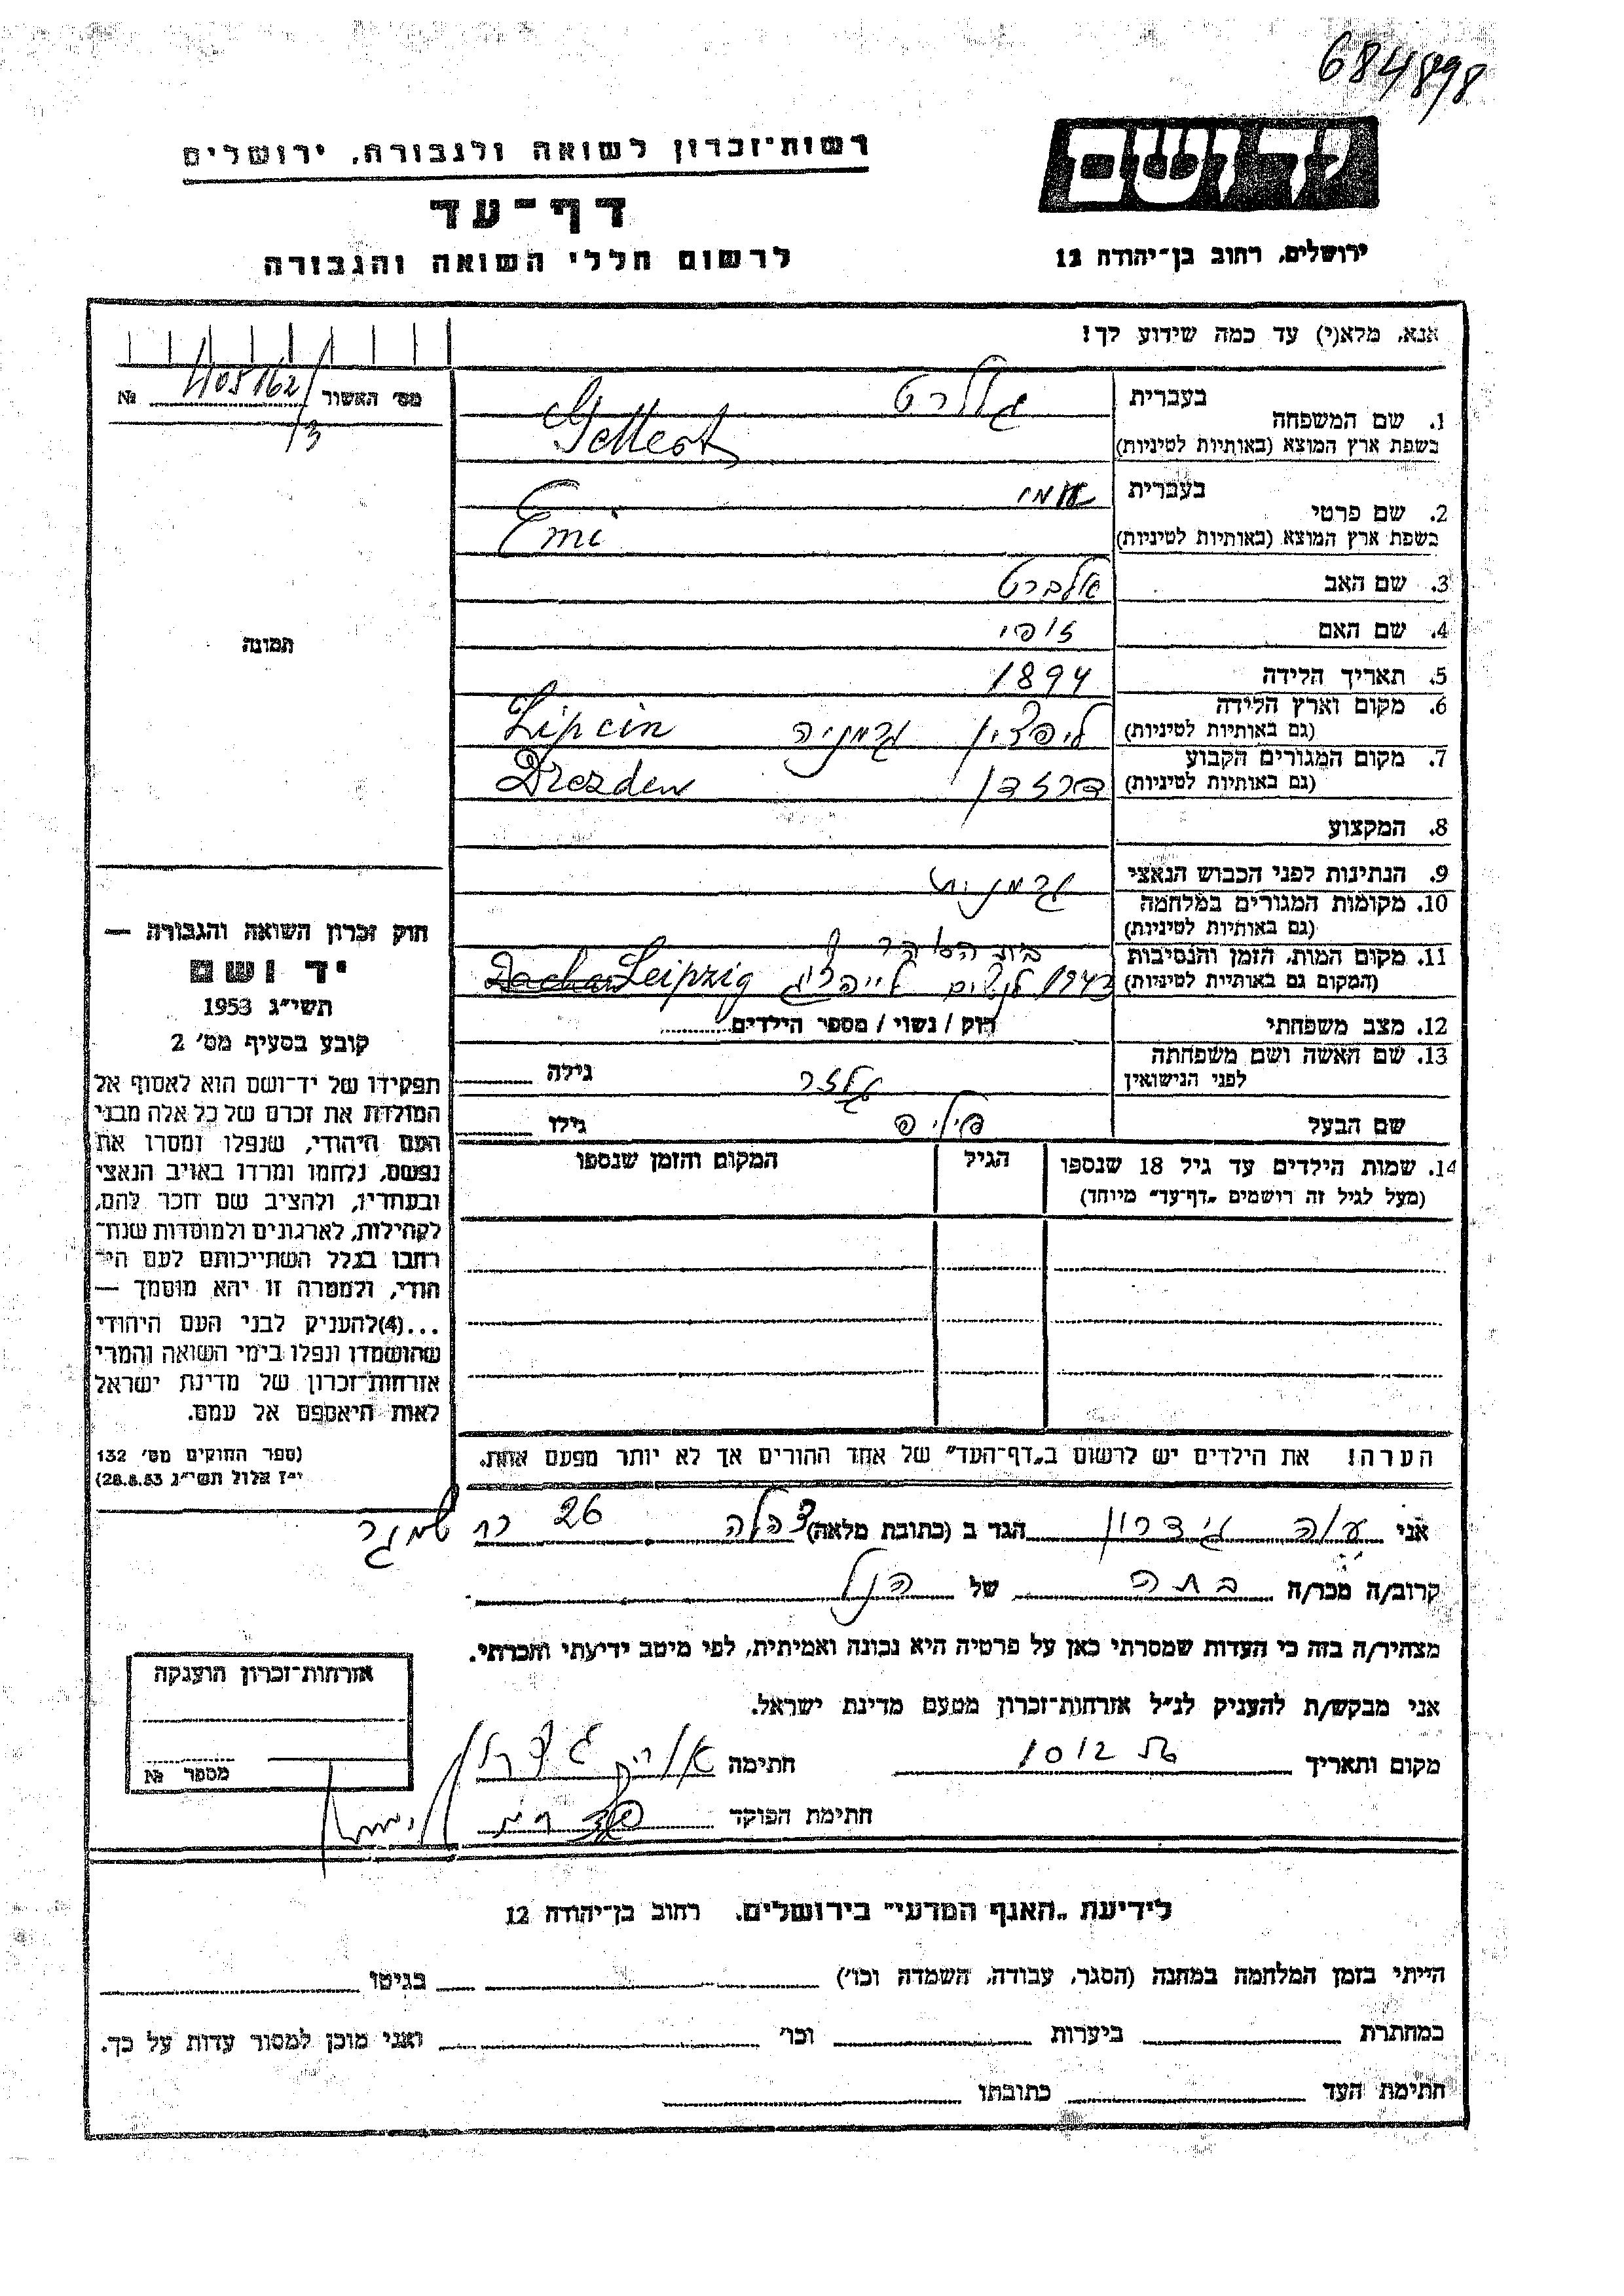 684898
יד ושם
רשות־זכרון לשואה ולגבורה, ירושלים
דף־עד
לרשום חללי השואה והגבורה
ירושלים, רחוב בן־יהודה 12
אנא, מלא(י) עד כמה שידוע לך!
מס׳ האשור № 1105162/
/3
1. שם המשפחה
בעברית גלרט
בשפת ארץ המוצא (באותיות לטיניות) Gellert
2. שם פרטי
בעברית אמי
בשפת ארץ המוצא (באותיות לטיניות) Emi
3. שם האב אלברט
4. שם האם זופי
5. תאריך הלידה 1894
6. מקום וארץ הלידה
(גם באותיות לטיניות) ליפציון גרמניה Lipcin
7. מקום המגורים הקבוע
(גם באותיות לטיניות) דרזדן Drezden
8. המקצוע
9. הנתינות לפני הכבוש הנאצי גרמנית
10. מקומות המגורים במלחמה
(גם באותיות לטיניות)
11. מקום המות, הזמן והנסיבות בית הסוהר
(המקום גם באותיות לטיניות) 1943 לנשים לייפציג Leipzig
12. מצב משפחתי רוק / נשוי / מספר הילדים
13. שם האשה ושם משפחתה
לפני הנישואין גילה
שם הבעל פיליפ גילו
14. שמות הילדים עד גיל 18 שנספו הגיל המקום והזמן שנספו
(מעל לגיל זה רושמים „דף־עד״ מיוחד)
הערה! את הילדים יש לרשום ב„דף־העד״ של אחד ההורים אך לא יותר מפעם אחת.
תמונה
חוק זכרון השואה והגבורה —
יד ושם
תשי״ג 1953
קובע בסעיף מס׳ 2
תפקידו של יד־ושם הוא לאסוף אל
המולדת את זכרם של כל אלה מבני
העם היהודי, שנפלו ומסרו את
נפשם, נלחמו ומרדו באויב הנאצי
ובעוזריו, ולהציב שם וזכר להם,
לקהילות, לארגונים ולמוסדות שנח־
רבו בגלל השתייכותם לעם הי־
הודי, ולמטרה זו יהא מוסמך —
...(4)להעניק לבני העם היהודי
שהושמדו ונפלו בימי השואה והמרי
אזרחות־זכרון של מדינת ישראל
לאות היאספם אל עמם.
(ספר החוקים מס׳ 132
י״ז אלול תשי״ג 28.8.53)
אני גדרון הגר ב (כתובת מלאה) צהלה 26 רח׳ שמגר
קרוב/ה מכר/ה בתה של הנ״ל
מצהיר/ה בזה כי העדות שמסרתי כאן על פרטיה היא נכונה ואמיתית, לפי מיטב ידיעתי והכרתי.
אני מבקש/ת להעניק לנ״ל אזרחות־זכרון מטעם מדינת ישראל.
מקום ותאריך חתימה
חתימת הפוקד
אזרחות־זכרון הוענקה
מספר №
לידיעת „האגף המדעי״ בירושלים, רחוב בן־יהודה 12
הייתי בזמן המלחמה במחנה (הסגר, עבודה, השמדה וכו׳) בגיטו
במחתרת ביערות וכו׳ ואני מוכן למסור עדות על כך.
חתימת העד כתובתו